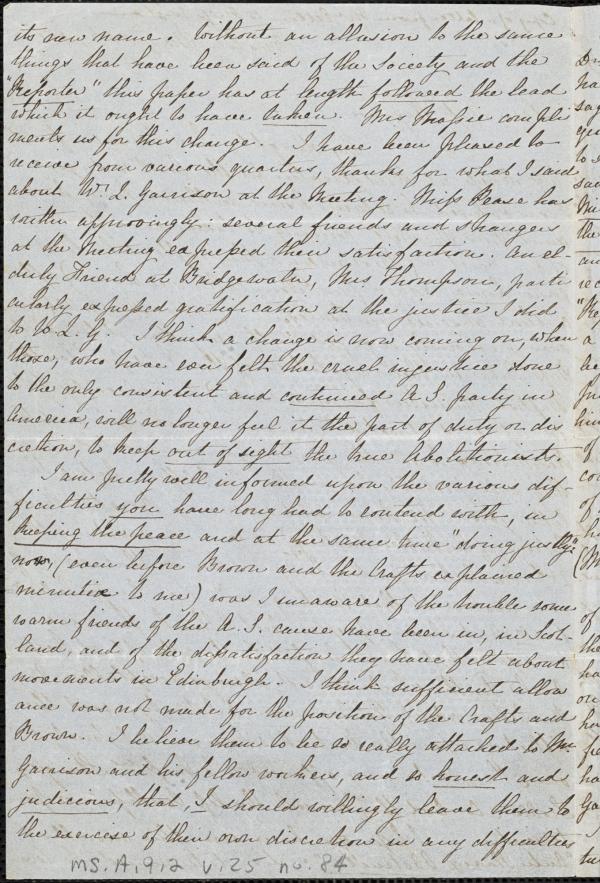 its new name. Without an allusion to the same
things that have been said of the Society and the
"Reporter" this paper has at length followed the lead
which it ought to have taken. Mrs Massie compli
ments us for this change. I have been pleased to
receive from various quarters, thanks for what I said
about Wm. L. Garrison at the Meeting. Miss Pease has
written approvingly: several friends and strangers
at the Meeting expressed their satisfaction. An el-
derly Friend at Bridgewater, Mrs Thompson, parti
cularly expressed gratification at the justice I did
to W. L. G. I think a change is now coming on, when
those, who have ever felt the cruel injustice done
to the only consistent and continued A. S. party in
America, will no longer feel it the part of duty or dis
cretion, to keep out of sight the true Abolitionists.
I am pretty well informed upon the various dif-
ficulties you have long had to contend with, in
keeping the peace and at the same time "doing justly;"
nor, (even before Brown and the Crafts explained
minutiæ to me) was I unaware of the trouble some
warm friends of the A. S. cause have been in, in Scot-
land, and of the dissatisfaction they have felt about
movements in Edinburgh. I think sufficient allow
ance was not made for the position of the Crafts and
Brown. I believe them to be so really attached to Mr
Garrison and his fellow workers, and so honest and
judicious, that, I should willingly leave them to
the exercise of their own discretion in any difficulties
MS. A. 9. 2 v. 25 no. 84